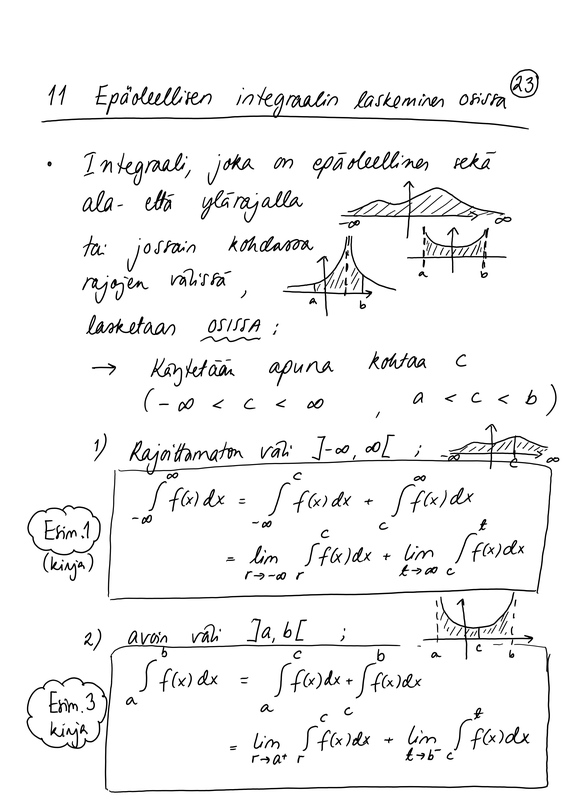 23
11 Epäoleellisen integraalin laskeminen osissa
• Integraali, joka on epäoleellinen sekä
ala- että ylärajalla
-∞ ∞
tai jossain kohdassa
a b
rajojen välissä,
a b
lasketaan OSISSA:
→ Käytetään apuna kohtaa c
(-∞ < c < ∞ , a < c < b)
1) Rajoittamaton väli ]-∞, ∞[ ;
-∞ c ∞
∫_{-∞}^{∞} f(x) dx = ∫_{-∞}^{c} f(x) dx + ∫_{c}^{∞} f(x) dx
Esim.1
(kirja)
= lim_{r→-∞} ∫_{r}^{c} f(x) dx + lim_{t→∞} ∫_{c}^{t} f(x) dx
2) avoin väli ]a, b[ ;
a c b
∫_{a}^{b} f(x) dx = ∫_{a}^{c} f(x) dx + ∫_{c}^{b} f(x) dx
Esim.3
kirja
= lim_{r→a⁺} ∫_{r}^{c} f(x) dx + lim_{t→b⁻} ∫_{c}^{t} f(x) dx